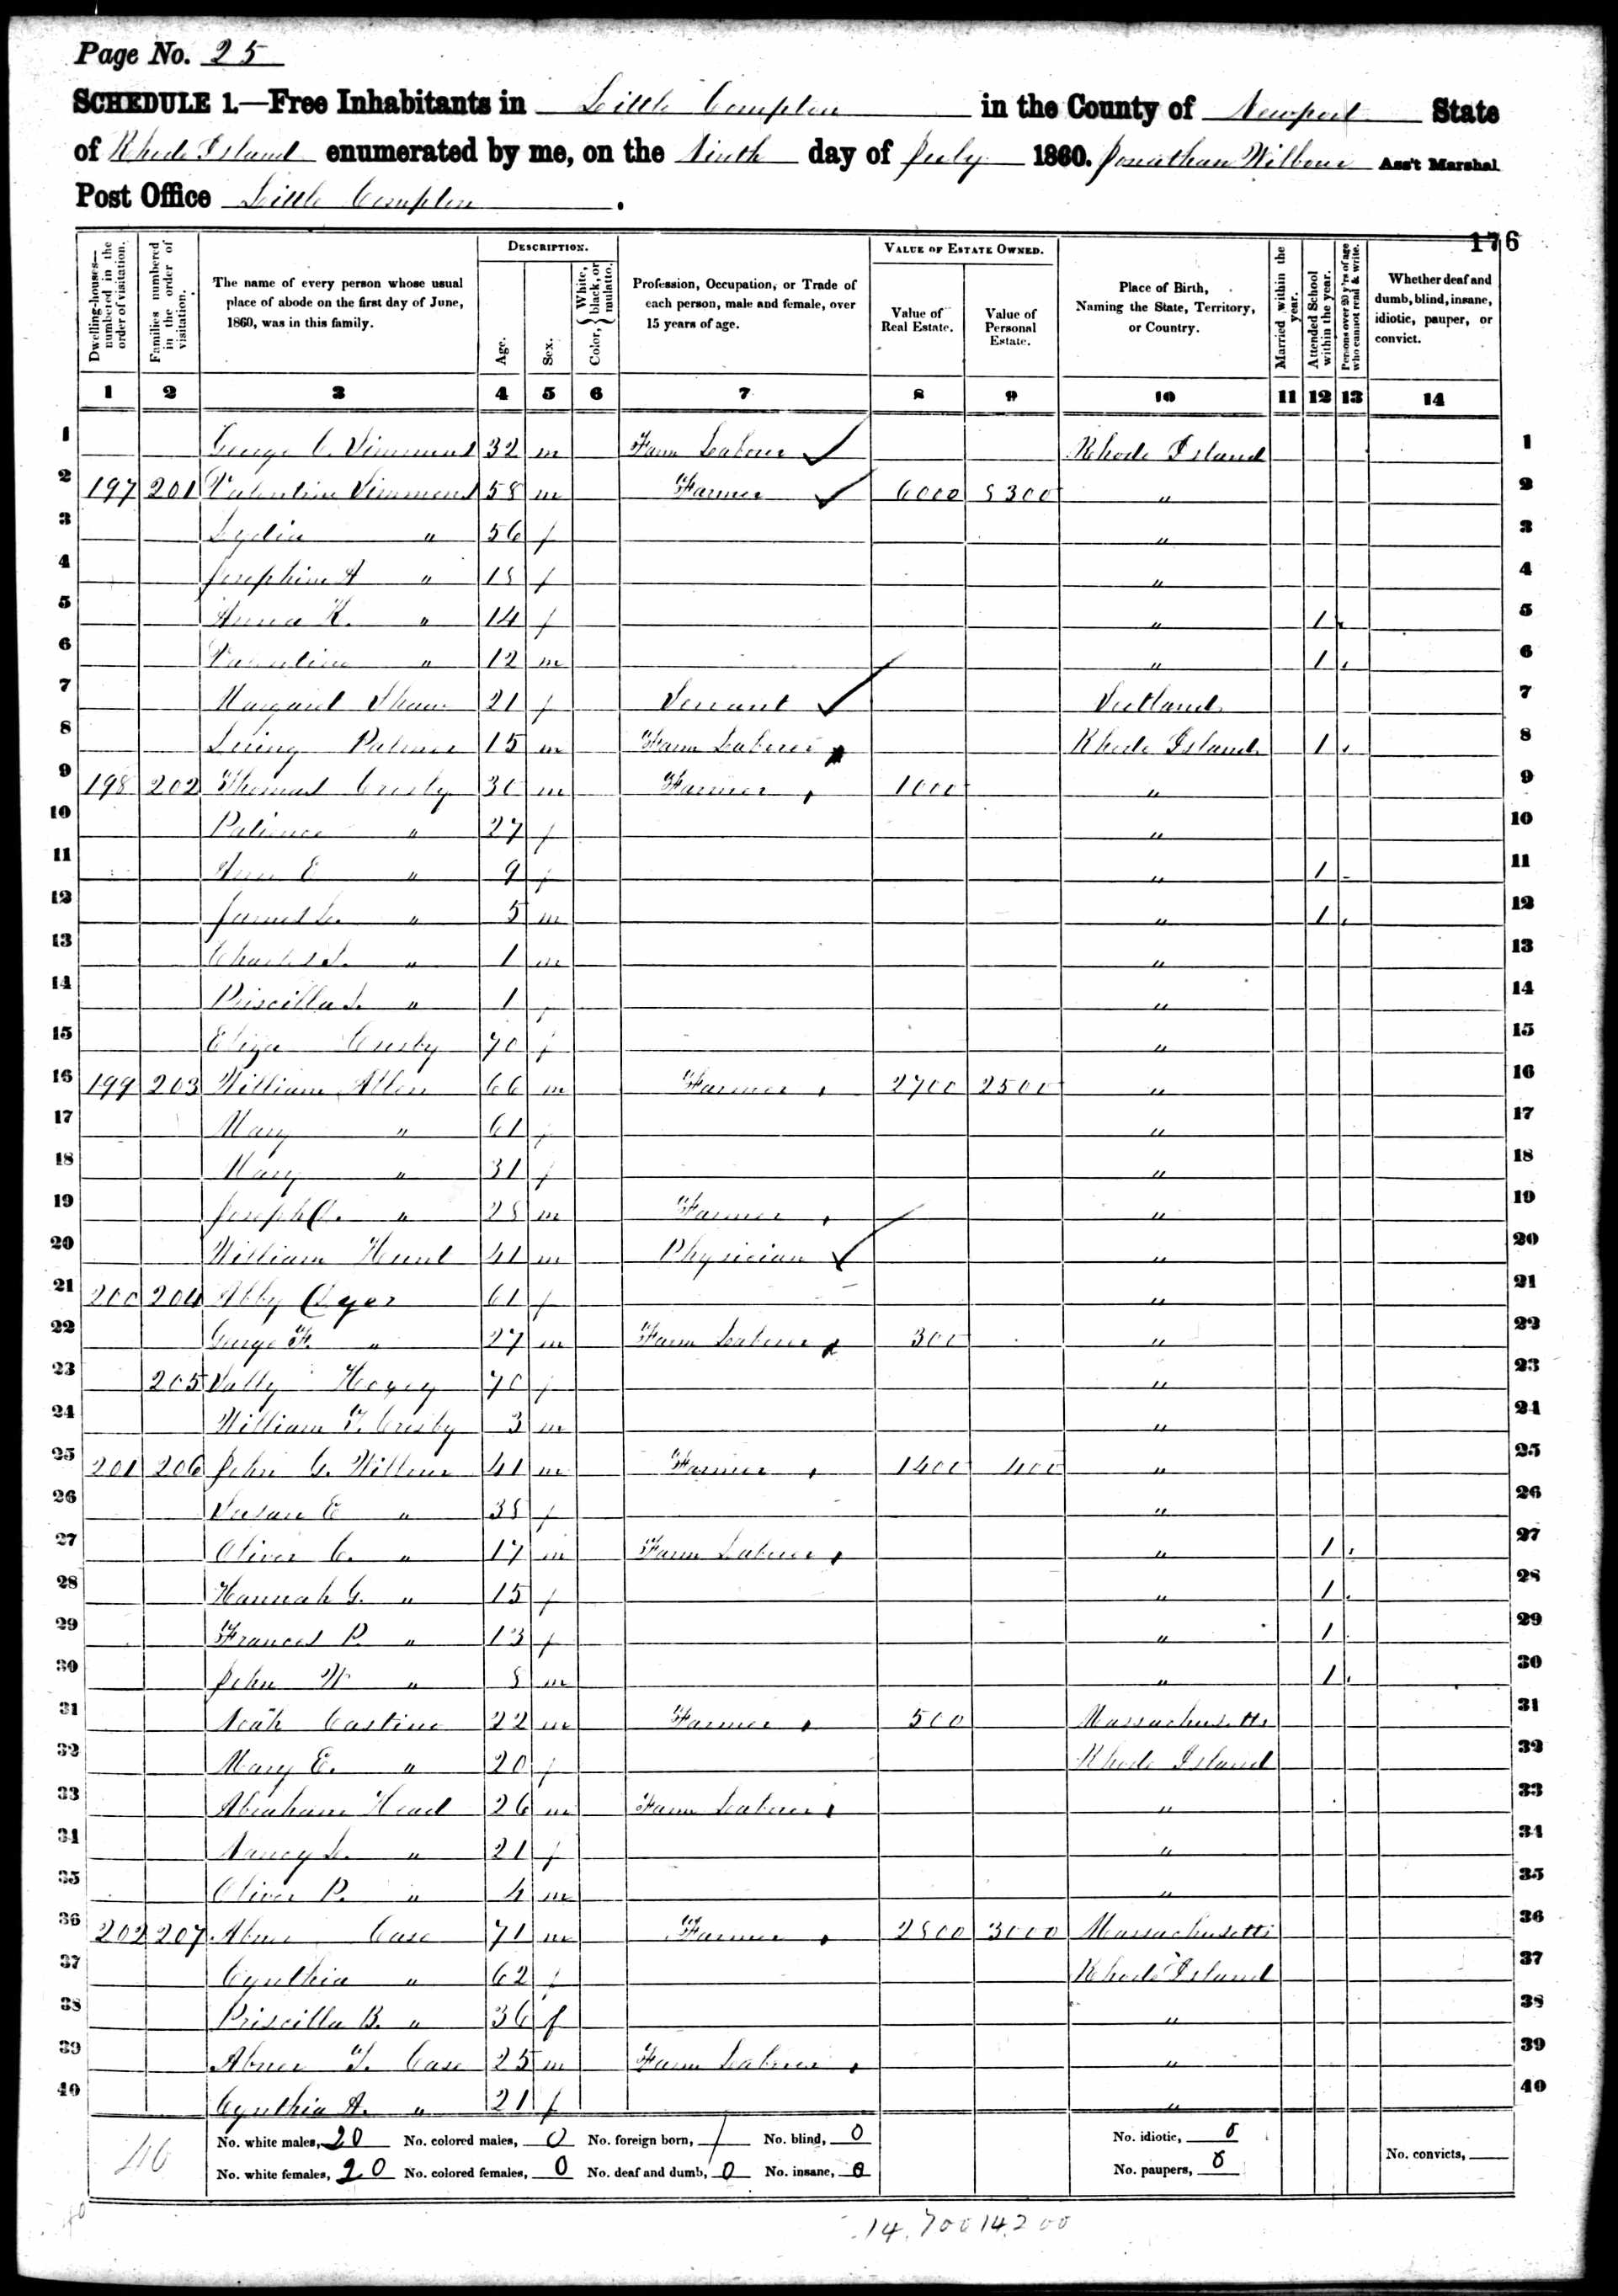 Page No. 25
SCHEDULE 1.—Free Inhabitants in Little Compton in the County of Newport State
of Rhode Island enumerated by me, on the Ninth day of July 1860. Jonathan Wilbour Ass't Marshal
Post Office Little Compton.
176
Dwelling-houses—numbered in the order of visitation. Families numbered in the order of visitation. The name of every person whose usual place of abode on the first day of June, 1860, was in this family. Description. Age. Sex. Color, White, black, or mulatto. Profession, Occupation, or Trade of each person, male and female, over 15 years of age. Value of Estate Owned. Value of Real Estate. Value of Personal Estate. Place of Birth, Naming the State, Territory, or Country. Married within the year. Attended School within the year. Persons over 20 y'rs of age who cannot read & write. Whether deaf and dumb, blind, insane, idiotic, pauper, or convict.
1 2 3 4 5 6 7 8 9 10 11 12 13 14
1 George C. Simmons 32 m Farm Labour Rhode Island 1
2 197 201 Valentine Simmons 58 m Farmer 6000 8300 " 2
3 Lydia " 56 f " 3
4 Josephine A " 18 f " 4
5 Anna K. " 14 f " 1 5
6 Valentine " 12 m " 1 6
7 Margaret Shaw 21 f Servant Scotland 7
8 Palmer 15 m Farm Laborer Rhode Island 1 8
9 198 202 Thomas Crosby 30 m Farmer 1000 " 9
10 Patience " 27 f " 10
11 Ann E " 9 f " 1 11
12 James L. " 5 m " 1 12
13 Charles S. " 1 m " 13
14 Priscilla S. " 1 f " 14
15 Eliza Crosby 70 f " 15
16 199 203 William Allen 66 m Farmer 2700 2500 " 16
17 Mary " 61 f " 17
18 Mary " 31 f " 18
19 Joseph " 28 m Farmer " 19
20 William Hunt 41 m Physician " 20
21 200 204 Abby Dyer 61 f " 21
22 George F. " 27 m Farm Laborer 300 " 22
23 205 Sally 70 f " 23
24 William T. Crosby 3 m " 24
25 201 206 John G. Wilbour 41 m Farmer 1400 400 " 25
26 Susan E " 38 f " 26
27 Oliver C. " 17 m Farm Laborer " 1 27
28 Hannah G. " 15 f " 1 28
29 Frances P. " 13 f " 1 29
30 John W " 8 m " 1 30
31 Noah Castino 22 m Farmer 500 Massachusetts 31
32 Mary E. " 20 f Rhode Island 32
33 Abraham Head 26 m Farm Laborer " 33
34 Nancy L. " 21 f " 34
35 Oliver P. " 4 m " 35
36 202 207 Abner Case 71 m Farmer 2800 3000 Massachusetts 36
37 Cynthia " 62 f Rhode Island 37
38 Priscilla B. " 36 f " 38
39 Abner T. Case 25 m Farm Laborer " 39
40 Cynthia A. " 21 f " 40
40 No. white males, 20 No. colored males, 0 No. foreign born, 1 No. blind, 0 No. idiotic, 0
No. white females, 20 No. colored females, 0 No. deaf and dumb, 0 No. insane, 0 No. paupers, 0 No. convicts,
14,700 14,200